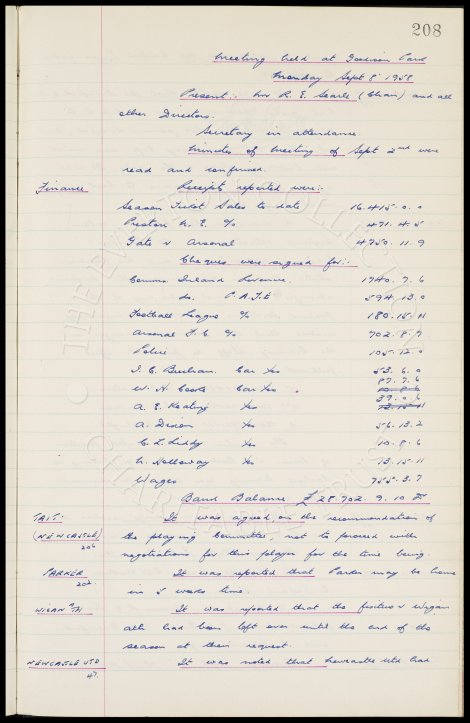 208
Meeting held at Goodison Park
Monday Sept 8 1958
Present:- Mr R. E. Searle (Chair) and all
other Directors.
Secretary in attendance
Minutes of Meeting of Sept 2nd were
read and confirmed.
Finance Receipts reported were:-
Season Ticket Sales to date 16.415.0.0
Preston N. E. % 471.4.5
Gate v Arsenal 4750.11.9
Cheques were signed for:-
Comms. Inland Revenue. 1740.7.6
do. P.A.Y.E 594.13.0
Football League % 180.15.11
Arsenal F.C. % 702.8.9
Police 105.12.0
I. C. Buchan. Car Exs 53.6.0
W. H. Cooke Car Exs 87.7.6
10.8.6
A. E. Keating Exs 39.0.6
13.15.11
A. Dixon Exs 56.13.2
C. L. Liddy Exs 10.8.6
Holloway Exs 13.15.11
Wages 755.3.7
Bank Balance £28.702.9.10
TAIT It was agreed, on the recommendation of
(NEWCASTLE) the playing Committee, not to proceed with
206 negotiations for this player for the time being.
PARKER It was reported that Parker may be home
202 in 5 weeks time.
WIGAN ATH It was reported that the fixture v Wigan
Ath had been left over until the end of the
season at their request.
NEWCASTLE UTD It was noted that Newcastle Utd had
47.
THE EVERTON COLLECTION
CHARITABLE TRUST